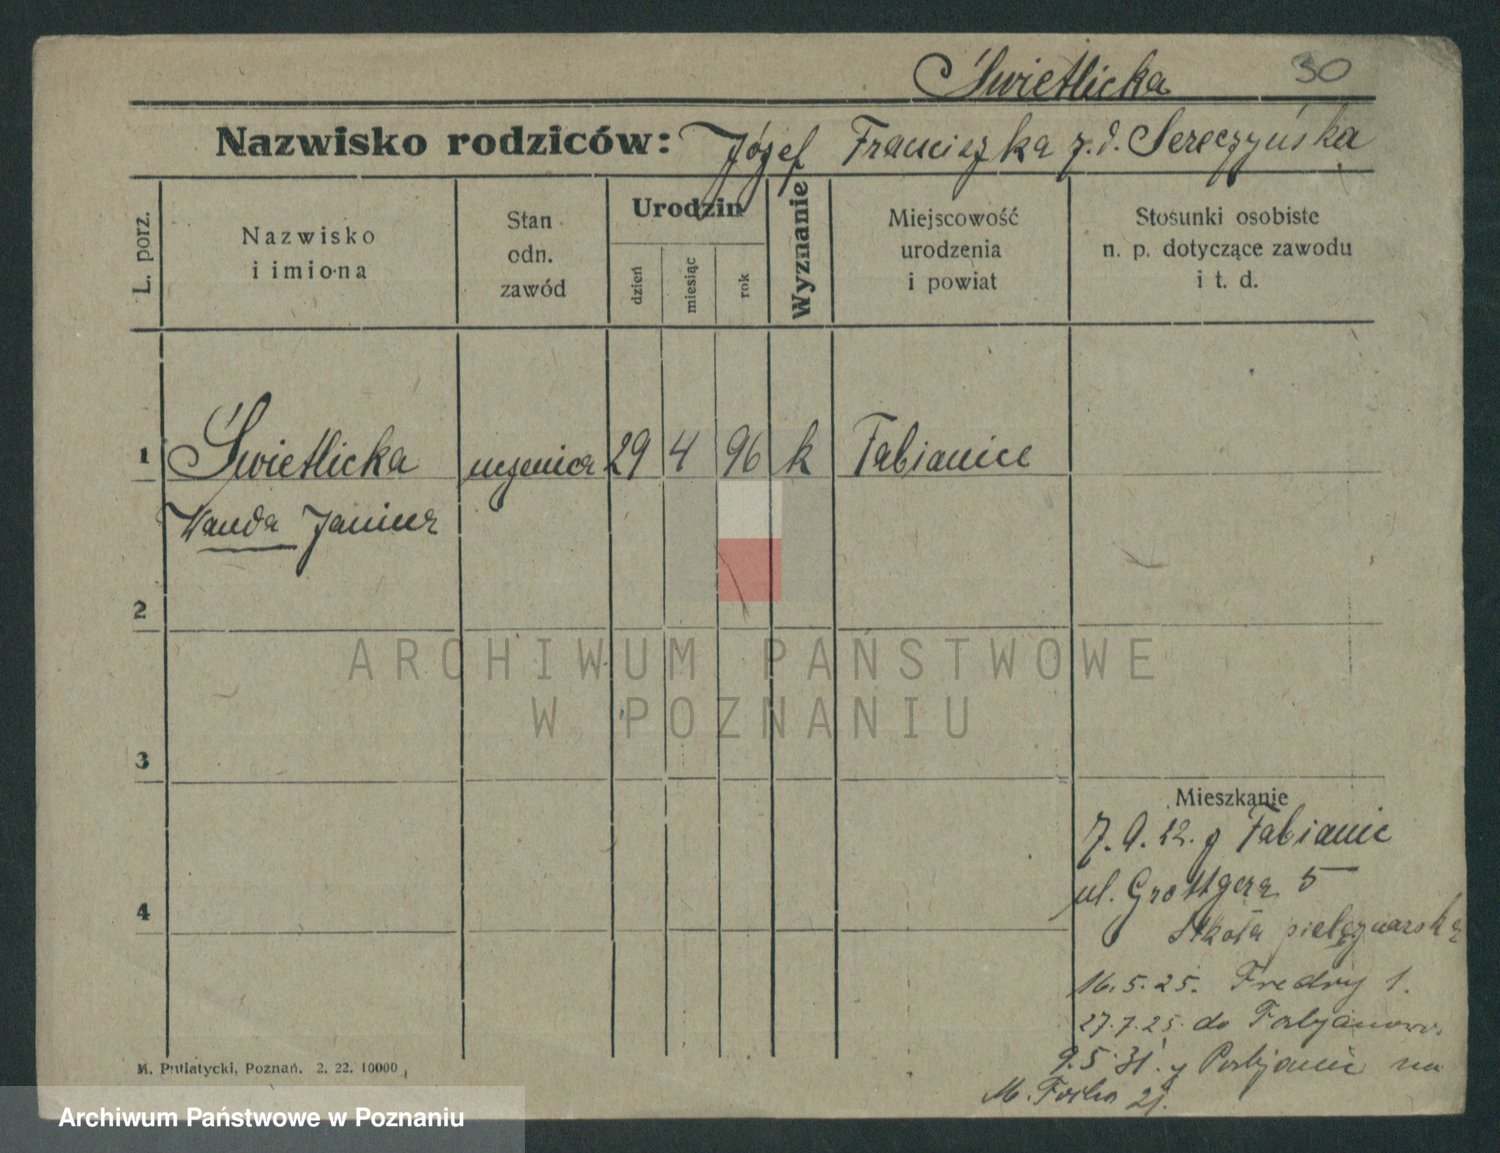 Świetlicka 30
Nazwisko rodziców: Józef Franciszka z.d. Sereczyńska
L. porz.
Nazwisko
i imiona
Stan
odn.
zawód
Urodzin
dzień
miesiąc
rok
Wyznanie
Miejscowość
urodzenia
i powiat
Stosunki osobiste
n. p. dotyczące zawodu
i t. d.
1 Świetlicka uczenica 29 4 96 k Pabianice
Wanda Janina
2
ARCHIWUM PAŃSTWOWE
W POZNANIU
3
Mieszkanie
7.9.22. z Pabianic
ul. Grottgera 5
4
Szkoła pielęgniarska
16.5.25. Fredry 1.
27.7.25. do
9.5.31. z Pabjanic na
M. Focha 21.
M. Putiatycki, Poznań. 2. 22. 10000
Archiwum Państwowe w Poznaniu